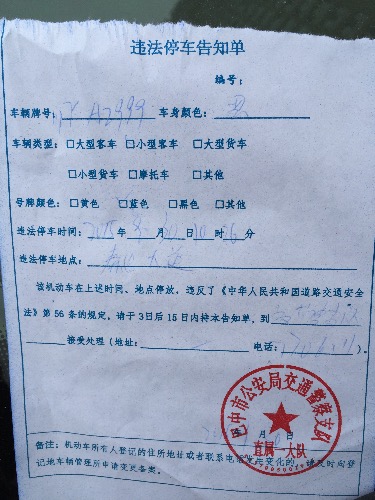 违法停车告知单
编号：
车辆牌号： A2999 车身颜色：
车辆类型：□大型客车 □小型客车 □大型货车
□小型货车 □摩托车 □其他
号牌颜色：□黄色 □蓝色 □黑色 □其他
违法停车时间：2015年8月30日10时26分
违法停车地点：
该机动车在上述时间、地点停放，违反了《中华人民共和国道路交通安全
法》第56条的规定，请于3日后15日内持本告知单，到
接受处理（地址： 电话： ）。
巴中市公安局交通警察支队
直属一大队
月 日
备注：机动车所有人登记的住所地址或者联系电话发生变化的，请及时向登
记地车辆管理所申请变更备案。